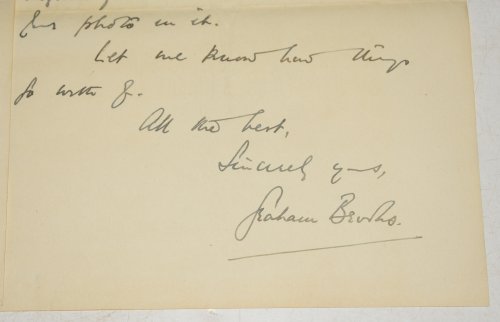 photo in it.
Let me know how things
go with
All the best,
Sincerely yours,
Graham Brooks.